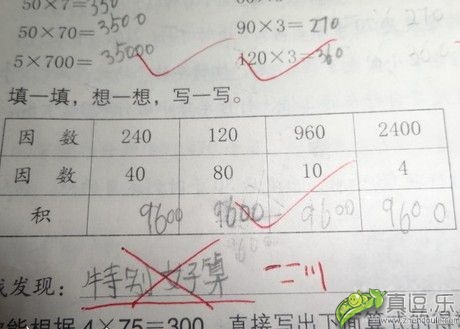 50×7=350
50×70=3500
90×3=270
5×700=35000
120×3=360
填一填,想一想,写一写。
因 数 240 120 960 2400
因 数 40 80 10 4
积 9600 9600 9600 9600
发现:特别好算
能根据4×75=300,直接写出下面算
真逗.乐